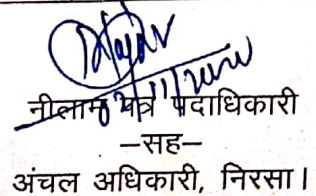 नीलाम पत्र पदाधिकारी
–सह–
अंचल अधिकारी, निरसा।